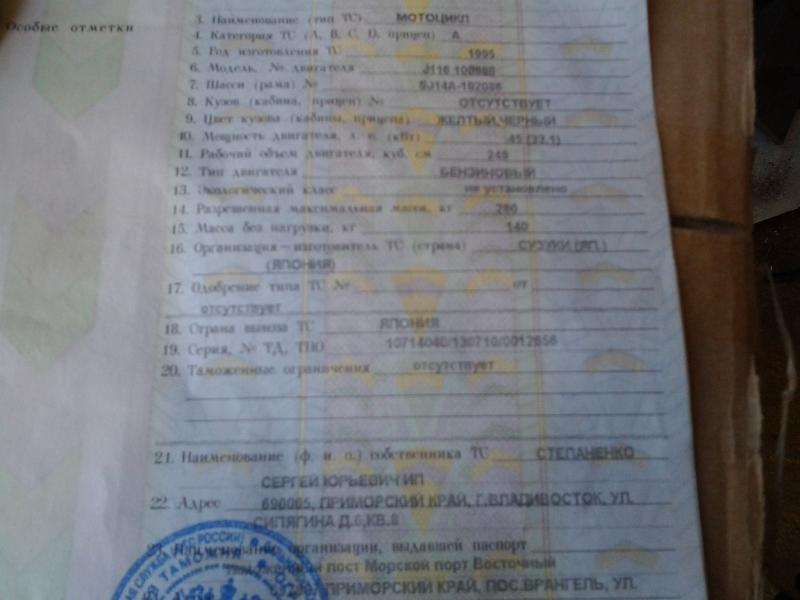 Особые отметки
3. Наименование (тип ТС) МОТОЦИКЛ
4. Категория ТС (А, В, С, D, прицеп) А
5. Год изготовления ТС 1995
6. Модель, № двигателя J116
7. Шасси (рама) № SJ14A-102086
8. Кузов (кабина, прицеп) № ОТСУТСТВУЕТ
9. Цвет кузова (кабины, прицепа) ЖЕЛТЫЙ,ЧЕРНЫЙ
10. Мощность двигателя, л. с. (кВт) 45 (33.1)
11. Рабочий объем двигателя, куб. см 249
12. Тип двигателя БЕНЗИНОВЫЙ
13. Экологический класс не установлено
14. Разрешенная максимальная масса, кг 280
15. Масса без нагрузки, кг 140
16. Организация – изготовитель ТС (страна) СУЗУКИ (ЯП.)
(ЯПОНИЯ)
17. Одобрение типа ТС № от
отсутствует
18. Страна вывоза ТС ЯПОНИЯ
19. Серия, № ТД, ТПО 10714040/130710/0012656
20. Таможенные ограничения отсутствует
21. Наименование (ф. и. о.) собственника ТС СТЕПАНЕНКО
СЕРГЕЙ ЮРЬЕВИЧ ИП
22. Адрес 690065, ПРИМОРСКИЙ КРАЙ, Г.ВЛАДИВОСТОК, УЛ.
СИПЯГИНА Д.6,КВ.8
23. Наименование организации, выдавшей паспорт
Таможенный пост Морской порт Восточный
ПРИМОРСКИЙ КРАЙ, ПОС.ВРАНГЕЛЬ, УЛ.